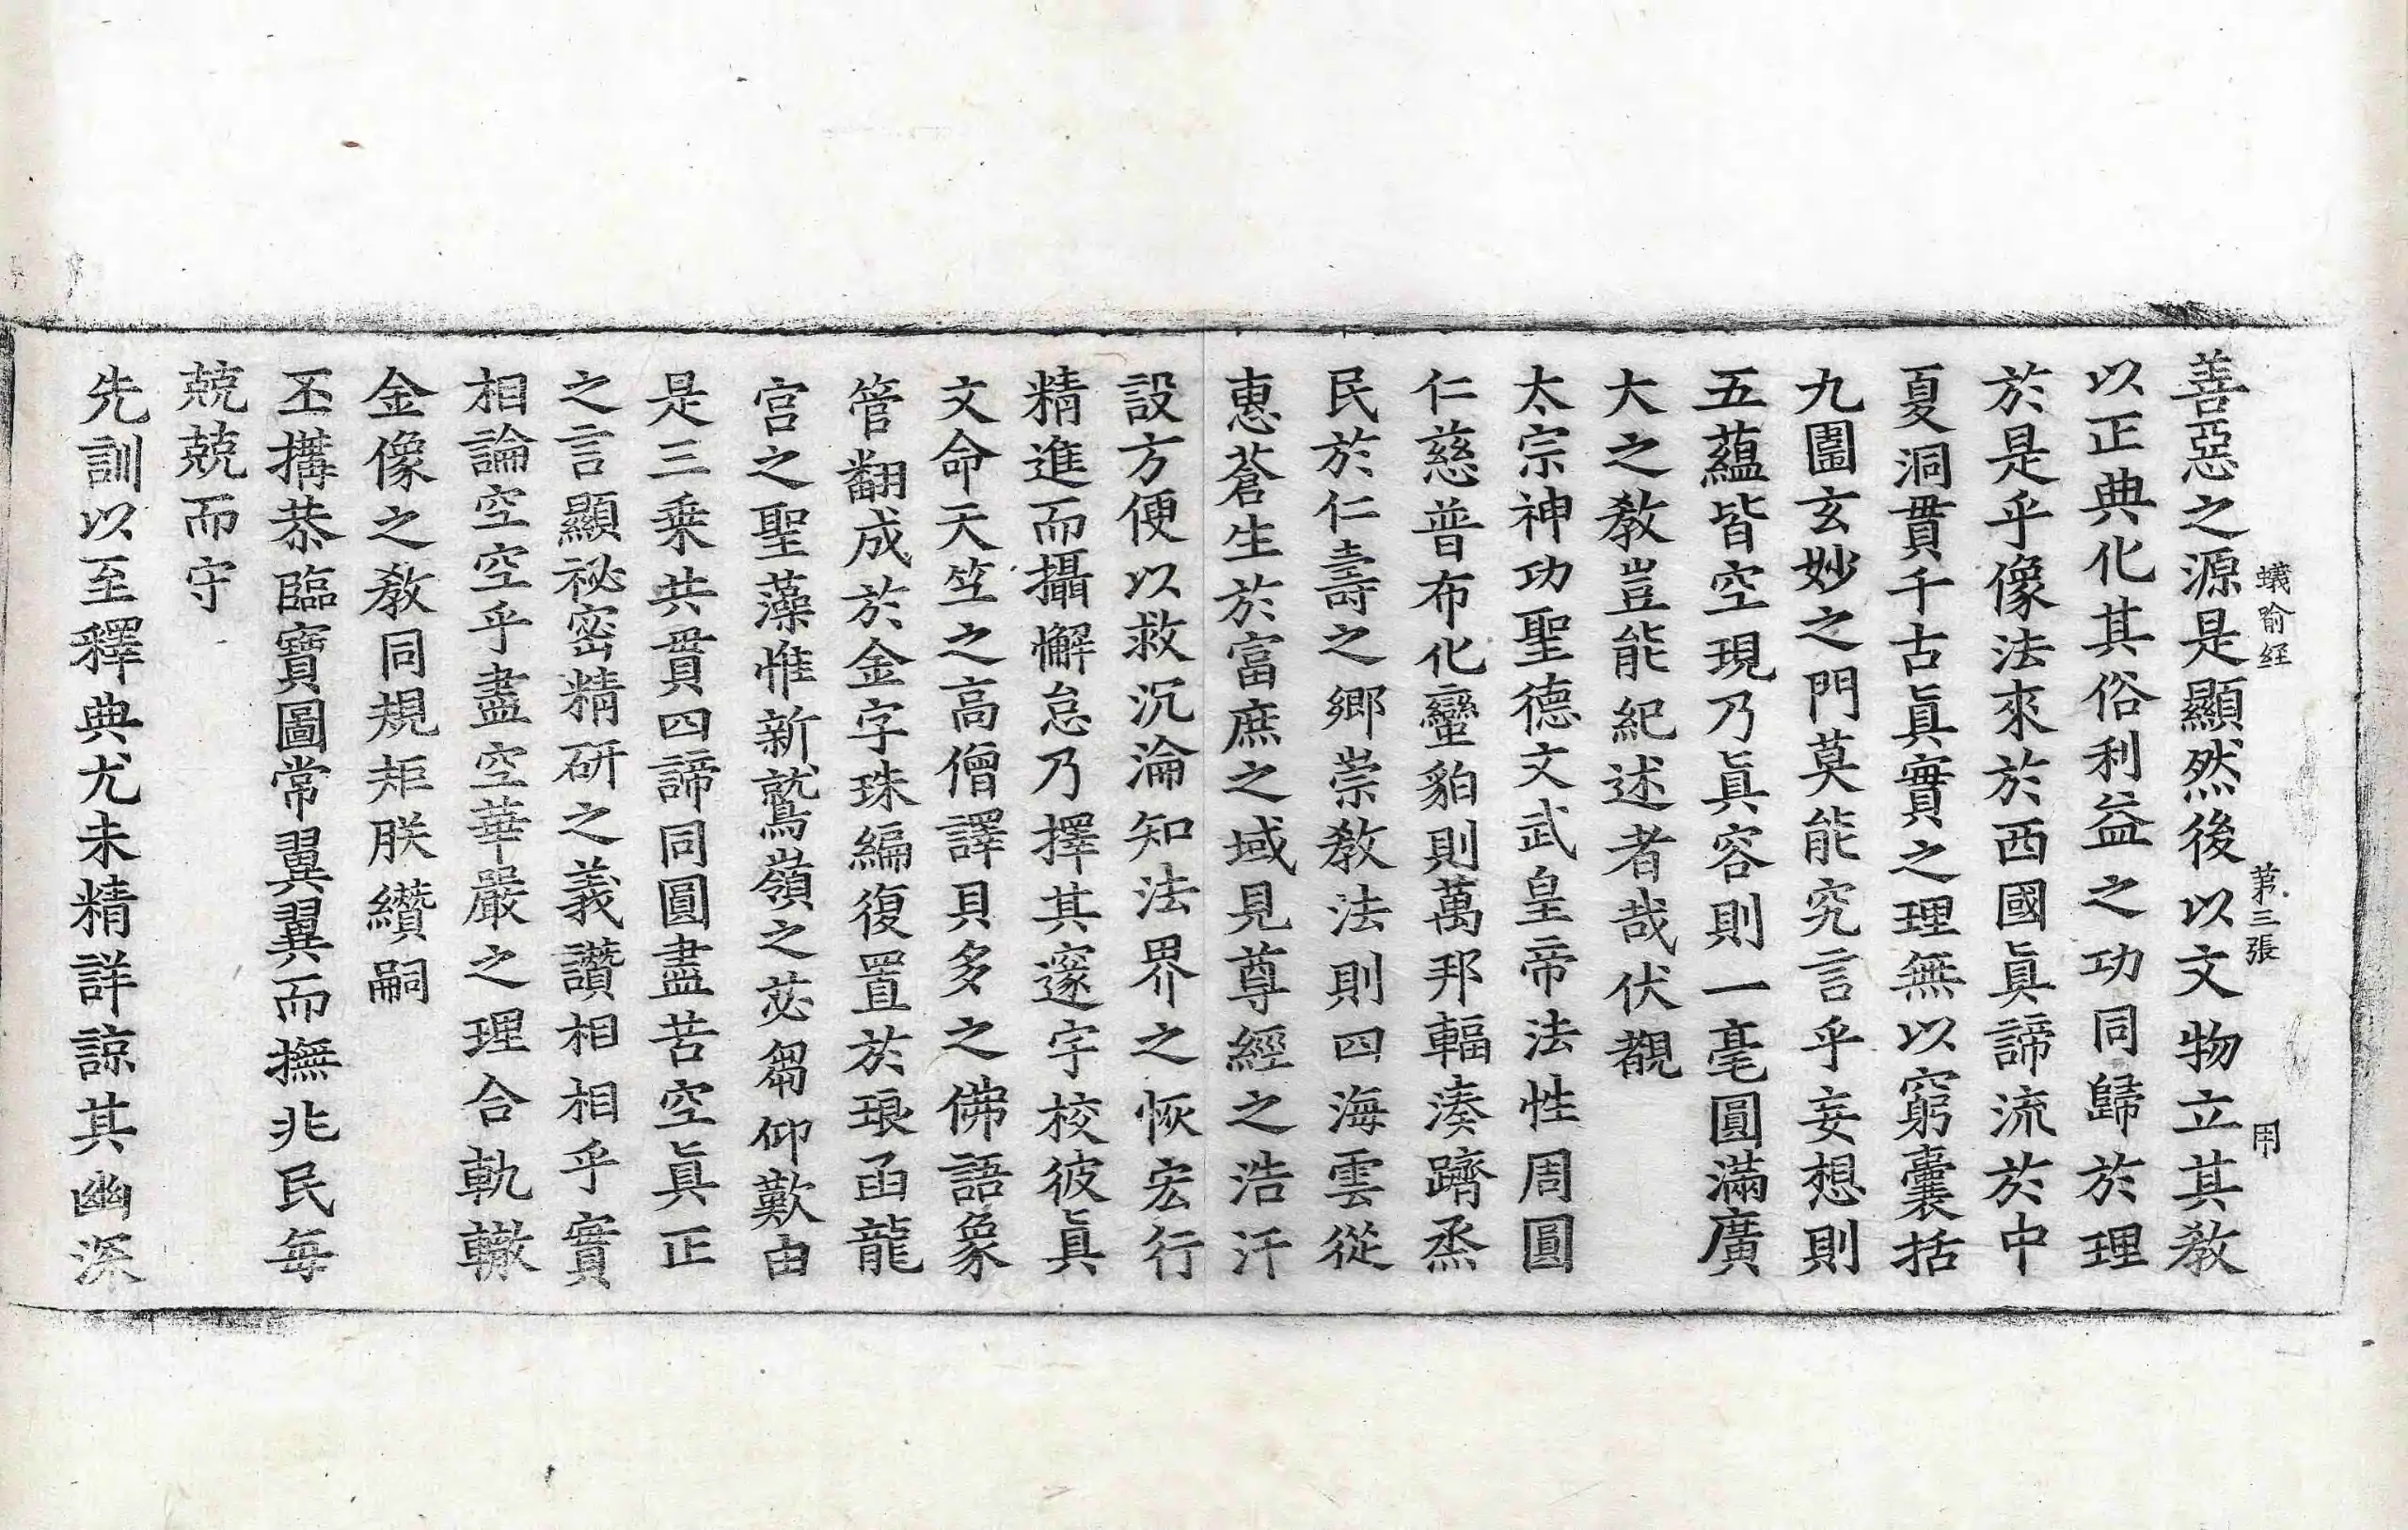 善惡之源是顯然後以文物立其教
蟻喻経 第三張 用
以正典化其俗利益之功同歸於理
於是乎像法來於西國眞諦流於中
夏洞貫千古眞實之理無以窮囊括
九圍玄妙之門莫能究言乎妄想則
五蘊皆空現乃眞容則一毫圓滿廣
大之教豈能紀述者哉伏覩
太宗神功聖德文武皇帝法性周圓
仁慈普布化蠻貊則萬邦輻湊躋烝
民於仁壽之鄉崇教法則四海雲從
惠蒼生於富庶之域見尊經之浩汗
設方便以救沉淪知法界之恢宏行
精進而攝懈怠乃擇其邃宇校彼眞
文命天竺之高僧譯貝多之佛語象
管翻成於金字珠編復置於琅函龍
宮之聖藻惟新鷲嶺之苾芻仰歎由
是三乘共貫四諦同圓盡苦空眞正
之言顯祕密精研之義讚相相乎實
相論空空乎盡空華嚴之理合軌轍
金像之教同規矩朕纘嗣
丕搆恭臨寶圖常翼翼而撫兆民每
兢兢而守
先訓以至釋典尤未精詳諒其幽深